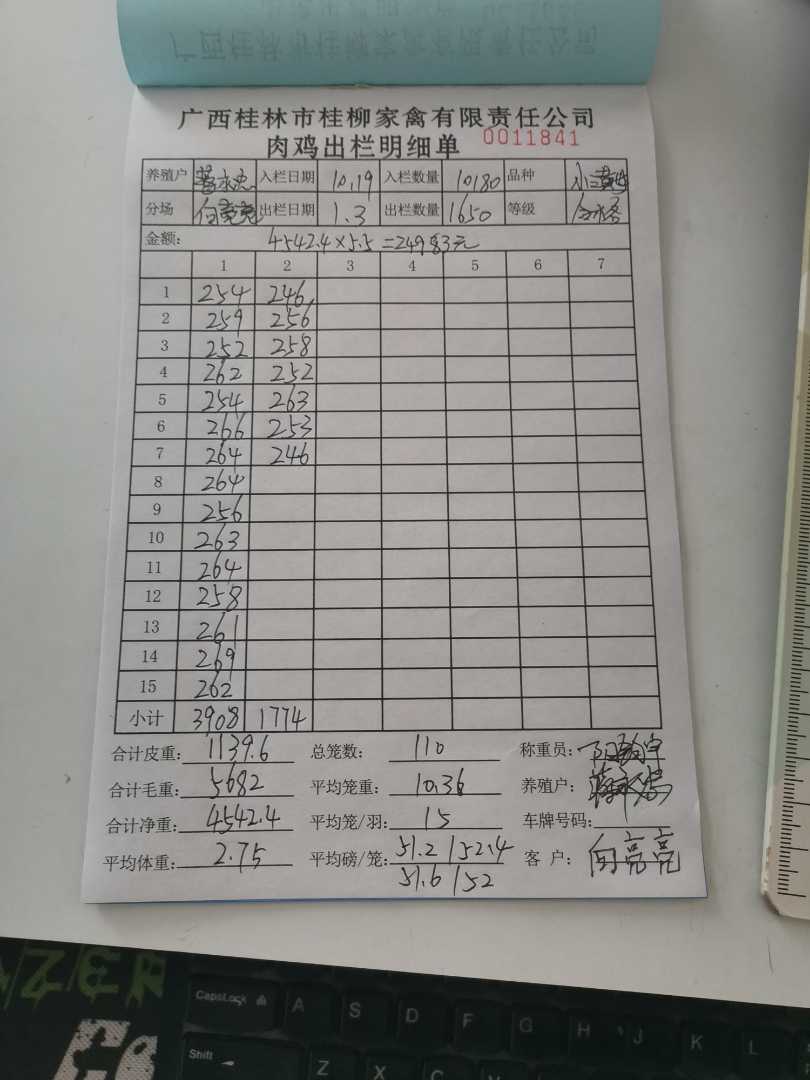 广西桂林市桂柳家禽有限责任公司
肉鸡出栏明细单 0011841
养殖户 入栏日期 10.19 入栏数量 10180 品种
分场 向亮亮 出栏日期 1.3 出栏数量 1650 等级
金额: 4542.4×5.5=24983元
1 2 3 4 5 6 7
1 254 246
2 259 256
3 252 258
4 262 252
5 254 263
6 266 253
7 264 246
8 264
9 256
10 263
11 264
12 258
13 261
14 269
15 262
小计 3908 1774
合计皮重: 1139.6 总笼数: 110 称重员:
合计毛重: 5682 平均笼重: 10.36 养殖户:
合计净重: 4542.4 平均笼/羽: 15 车牌号码:
平均体重: 2.75 平均磅/笼: 51.2/52.4 客户: 向亮亮
51.6/52
CapsLock A S D F G H J K L
Shift Z X C V